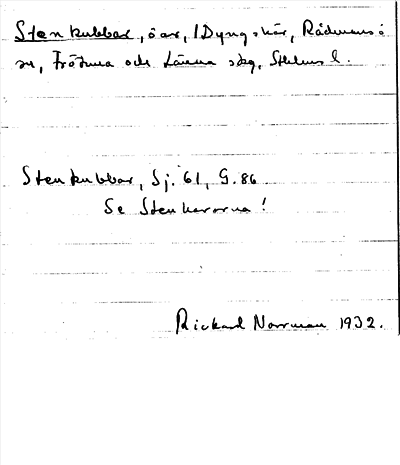 Stenkubbar, öar, 1 Dyngskär, Rådmansö
sn, Frötuna och Länna skg, Sthlms l.
Stenkubbar, Sj. 61, G. 86
Se Stenhararna!
Rickard Norrman 1932.